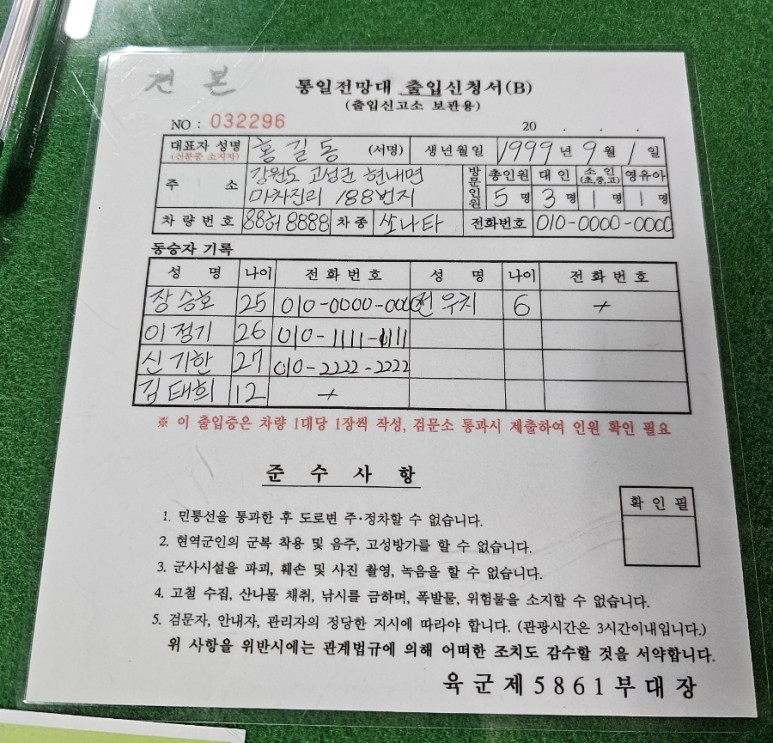 견 본
통일전망대 출입신청서(B)
(출입신고소 보관용)
NO : 032296 20 . . .
대표자 성명 (신분증 소지자) 홍길동 (서명) 생년월일 1999년 9월 1일
주 소 강원도 고성군 현내면 마차진리 188번지 방문인원 총인원 대 인 소 인 (초.중.고) 영유아
5명 3명 1명 1명
차량번호 88허 8888 차종 쏘나타 전화번호 010-0000-0000
동승자 기록
성 명 나이 전화번호 성 명 나이 전화번호
장승호 25 010-0000-0000 전우치 6 +
이정기 26 010-1111-1111
신기한 27 010-2222-2222
김태희 12 +
※ 이 출입증은 차량 1대당 1장씩 작성, 검문소 통과시 제출하여 인원 확인 필요
준 수 사 항
확 인 필
1. 민통선을 통과한 후 도로변 주·정차할 수 없습니다.
2. 현역군인의 군복 착용 및 음주, 고성방가를 할 수 없습니다.
3. 군사시설을 파괴, 훼손 및 사진 촬영, 녹음을 할 수 없습니다.
4. 고철 수집, 산나물 채취, 낚시를 금하며, 폭발물, 위험물을 소지할 수 없습니다.
5. 검문자, 안내자, 관리자의 정당한 지시에 따라야 합니다. (관광시간은 3시간이내입니다.)
위 사항을 위반시에는 관계법규에 의해 어떠한 조치도 감수할 것을 서약합니다.
육군제5861부대장